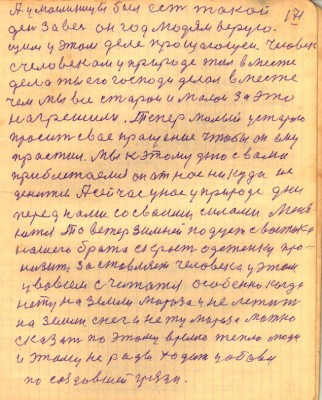 171
А у малинии был сст такой
ден за вес он год модям веруго-
щим у этом деле прощающеи. Человек
с человеком у природе жил вместе
дела ты его господи делал вместе
чем мы все старои и малои за это
нагрешили. Тепер малыи у стараго
просит свае пращение чтобы он ему
прастил. Мы к этому дню с вами
приблежаемся он от нас никуда не
денится А сейчас у нас у природе дни
перед нами со своими силами
То ветер зимнеи подует с востока
нашего брата скроет одеженку про-
низит, заставляет человека у этом
у вовсем считатся особенно когда
нету на земли мороза и не лежит
на земли снег и нету мороза можно
сказат по этому время тепло люди
и этаму не ради ходит у обови
по создавшей грязи.